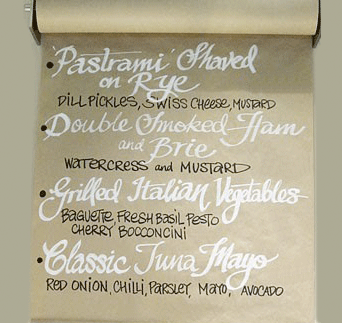 'Pastrami' Shaved
on Rye
DILL PICKLES, SWISS CHEESE, MUSTARD
Double Smoked Ham
and Brie
WATERCRESS and MUSTARD
Grilled Italian Vegetables
BAGUETTE, FRESH BASIL PESTO
CHERRY BOCCONCINI
Classic Tuna Mayo
RED ONION, CHILLI, PARSLEY, MAYO, AVOCADO